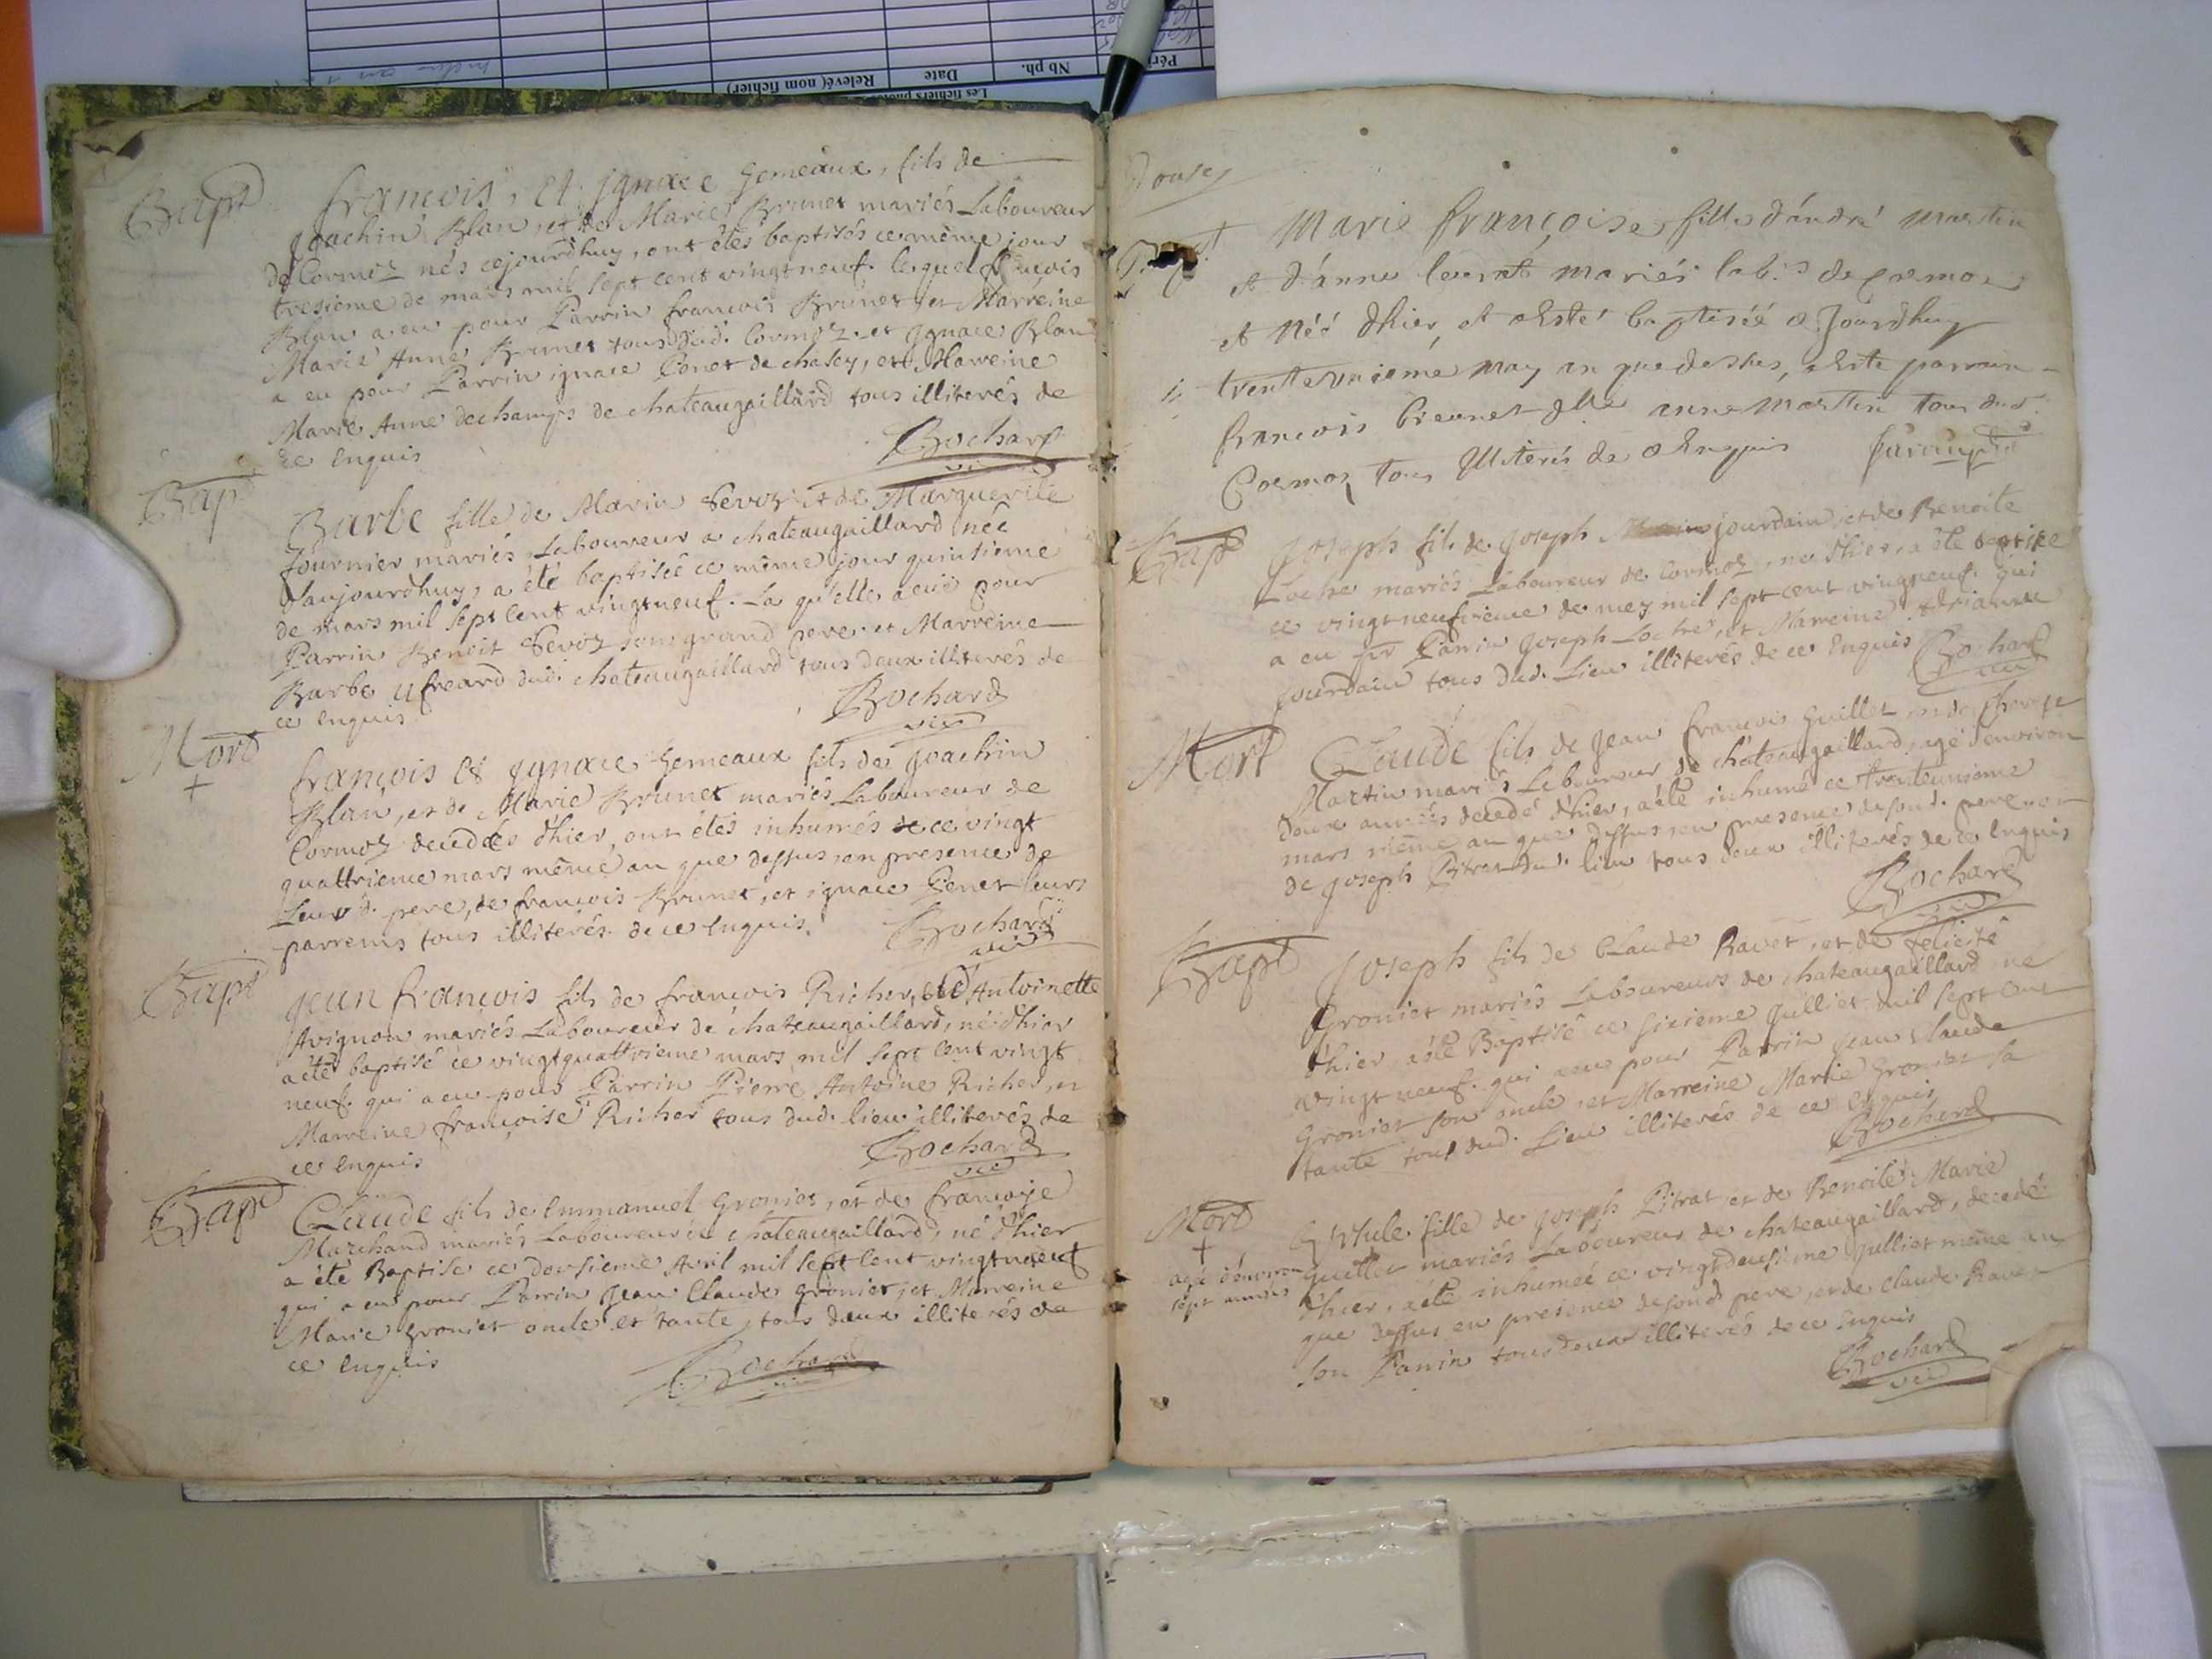 Les fichiers
Relevé( nom fichier)
Date
Nb ph.
Péri
Bapt
françois, Et Jgnace Gemeaux, fils de
Joachin Blan, et de Marie Brunet mariés Laboureur
de Cormoz nés cejourdhuy, ont étés baptisés ce même jour
tresieme de mars mil sept cent vingt neuf. lequel françois
Blan a eu pour Parrin françois Brunet et Marreine
Marie Anne Brunet tous dud. Cormoz. et Jgnace Blan
a eu pour Parrin ignace Genet de chasey, et Marreine
Marie Anne dechamps de chateaugaillard tous illiterés de
ce Enquis
Bochard
vic
Bap
Barbe fille de Marin Tevoz et de Marguerite
fournier mariés Laboureur a chateaugaillard née
daujourdhuy, a été baptisée ce même jour quinsieme
de mars mil sept cent vingtneuf. La qu'elle a eüe pour
Parrin Benoit Tevoz son grand pere et Marreine
Barbe dud. chateaugaillard tous deux illiterés de
ce Enquis
Bochard
vic
Mort
+
françois Et Jgnace Gemeaux fils de Joachin
Blan, et de Marie Brunet mariés Laboureur de
Cormoz decedés d'hier, ont étés inhumés de ce vingt
quattrieme mars même an que dessus, en presence de
Leur d. pere, de francois Brunet, et ignace Genet leurs
parreins tous illiterés de ce Enquis.
Bochard
vic
Bapt
Jean françois fils de françois Richer, et d'Antoinette
Avignon mariés Laboureur de chateaugaillard, né d'hier
a été baptisé ce vingtquattrieme mars mil sept cent vingt
neuf. qui a eu pour Parrin Pierre Antoine Richer, et
Marreine françoise Richer tous dud. lieu illiterés de
ce Enquis
Bochard
vic
Bap
Claude fils de Emmanuel Groniet, et de françoise
Marchand mariés Laboureur a chateaugaillard, né d'hier
a été Baptisé ce deusieme Avril mil sept cent vingtneuf
qui a eu pour Parrin Jean Claude Groniet, et Marreine
Marie Groniet oncle et tante, tous deux illiterés de
ce Enquis
Bochard
vic
Marie françoise, fille d'andré martin
et d'anne mariés lab. de Cormoz
et néé dhier, et a esté baptiséé a Jourdhuy
trente unieme may an que dessus, a este parrain
francois breunet et anne Martin tous dud.
Cormoz tous Illiterés de Enquis
Bap
Joseph fils de Joseph jourdain, et de Benoite
Loche mariés Laboureur de Cormoz, né d'hier, a été baptisé
ce vingt neufvieme de mey mil sept cent vingtneuf. qui
a eu pr Parrin Joseph Loche, et Marreine
jourdain tous dud. Lieu illiterés de ce Enquis
Bochard
vic
Mort
Claude fils de Jean françois Guillet et de
Martin mariés Laboureur de chateaugaillard, agé d'environ
doux années decedé d'hier, a été inhumé ce trenteunieme
mars même an que dessus, en presence de sond. pere et
de Joseph Pitrat dud. lieu tous deux illiterés de ce Enquis
Bochard
vic
Bapt
Joseph fils de Claude Ravet, et de felicité
Groniet mariés Laboureurs de chateaugaillard né
d'hier, a été Baptisé ce sixieme Julliet mil sept cent
vingt neuf. qui a eu pour Parrin Jean Claude
Groniet son oncle, et Marreine Marie Groniet sa
tante tous dud. Lieu illiterés de ce Enquis
Bochard
Mort
+
agée d'environ
sept années
fille de Joseph Pitrat et de Benoite Marie
mariés Laboureur de chateaugaillard, decedée
d'hier, a été inhumée ce vingtdeusieme Julliet même an
que dessus en presence de sond pere, et de Claude Ravet
son Parrin tous deux illiterés de ce Enquis
Bochard
vic